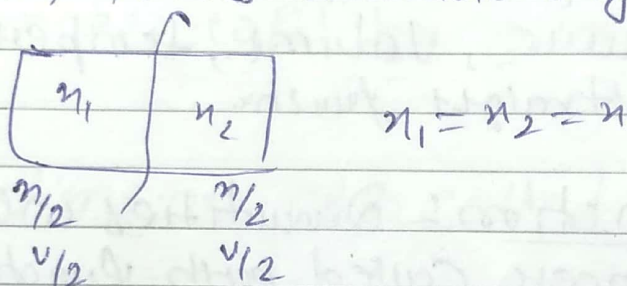 n₁ n₂ n₁ = n₂ = n
n/2 n/2
v/2 v/2